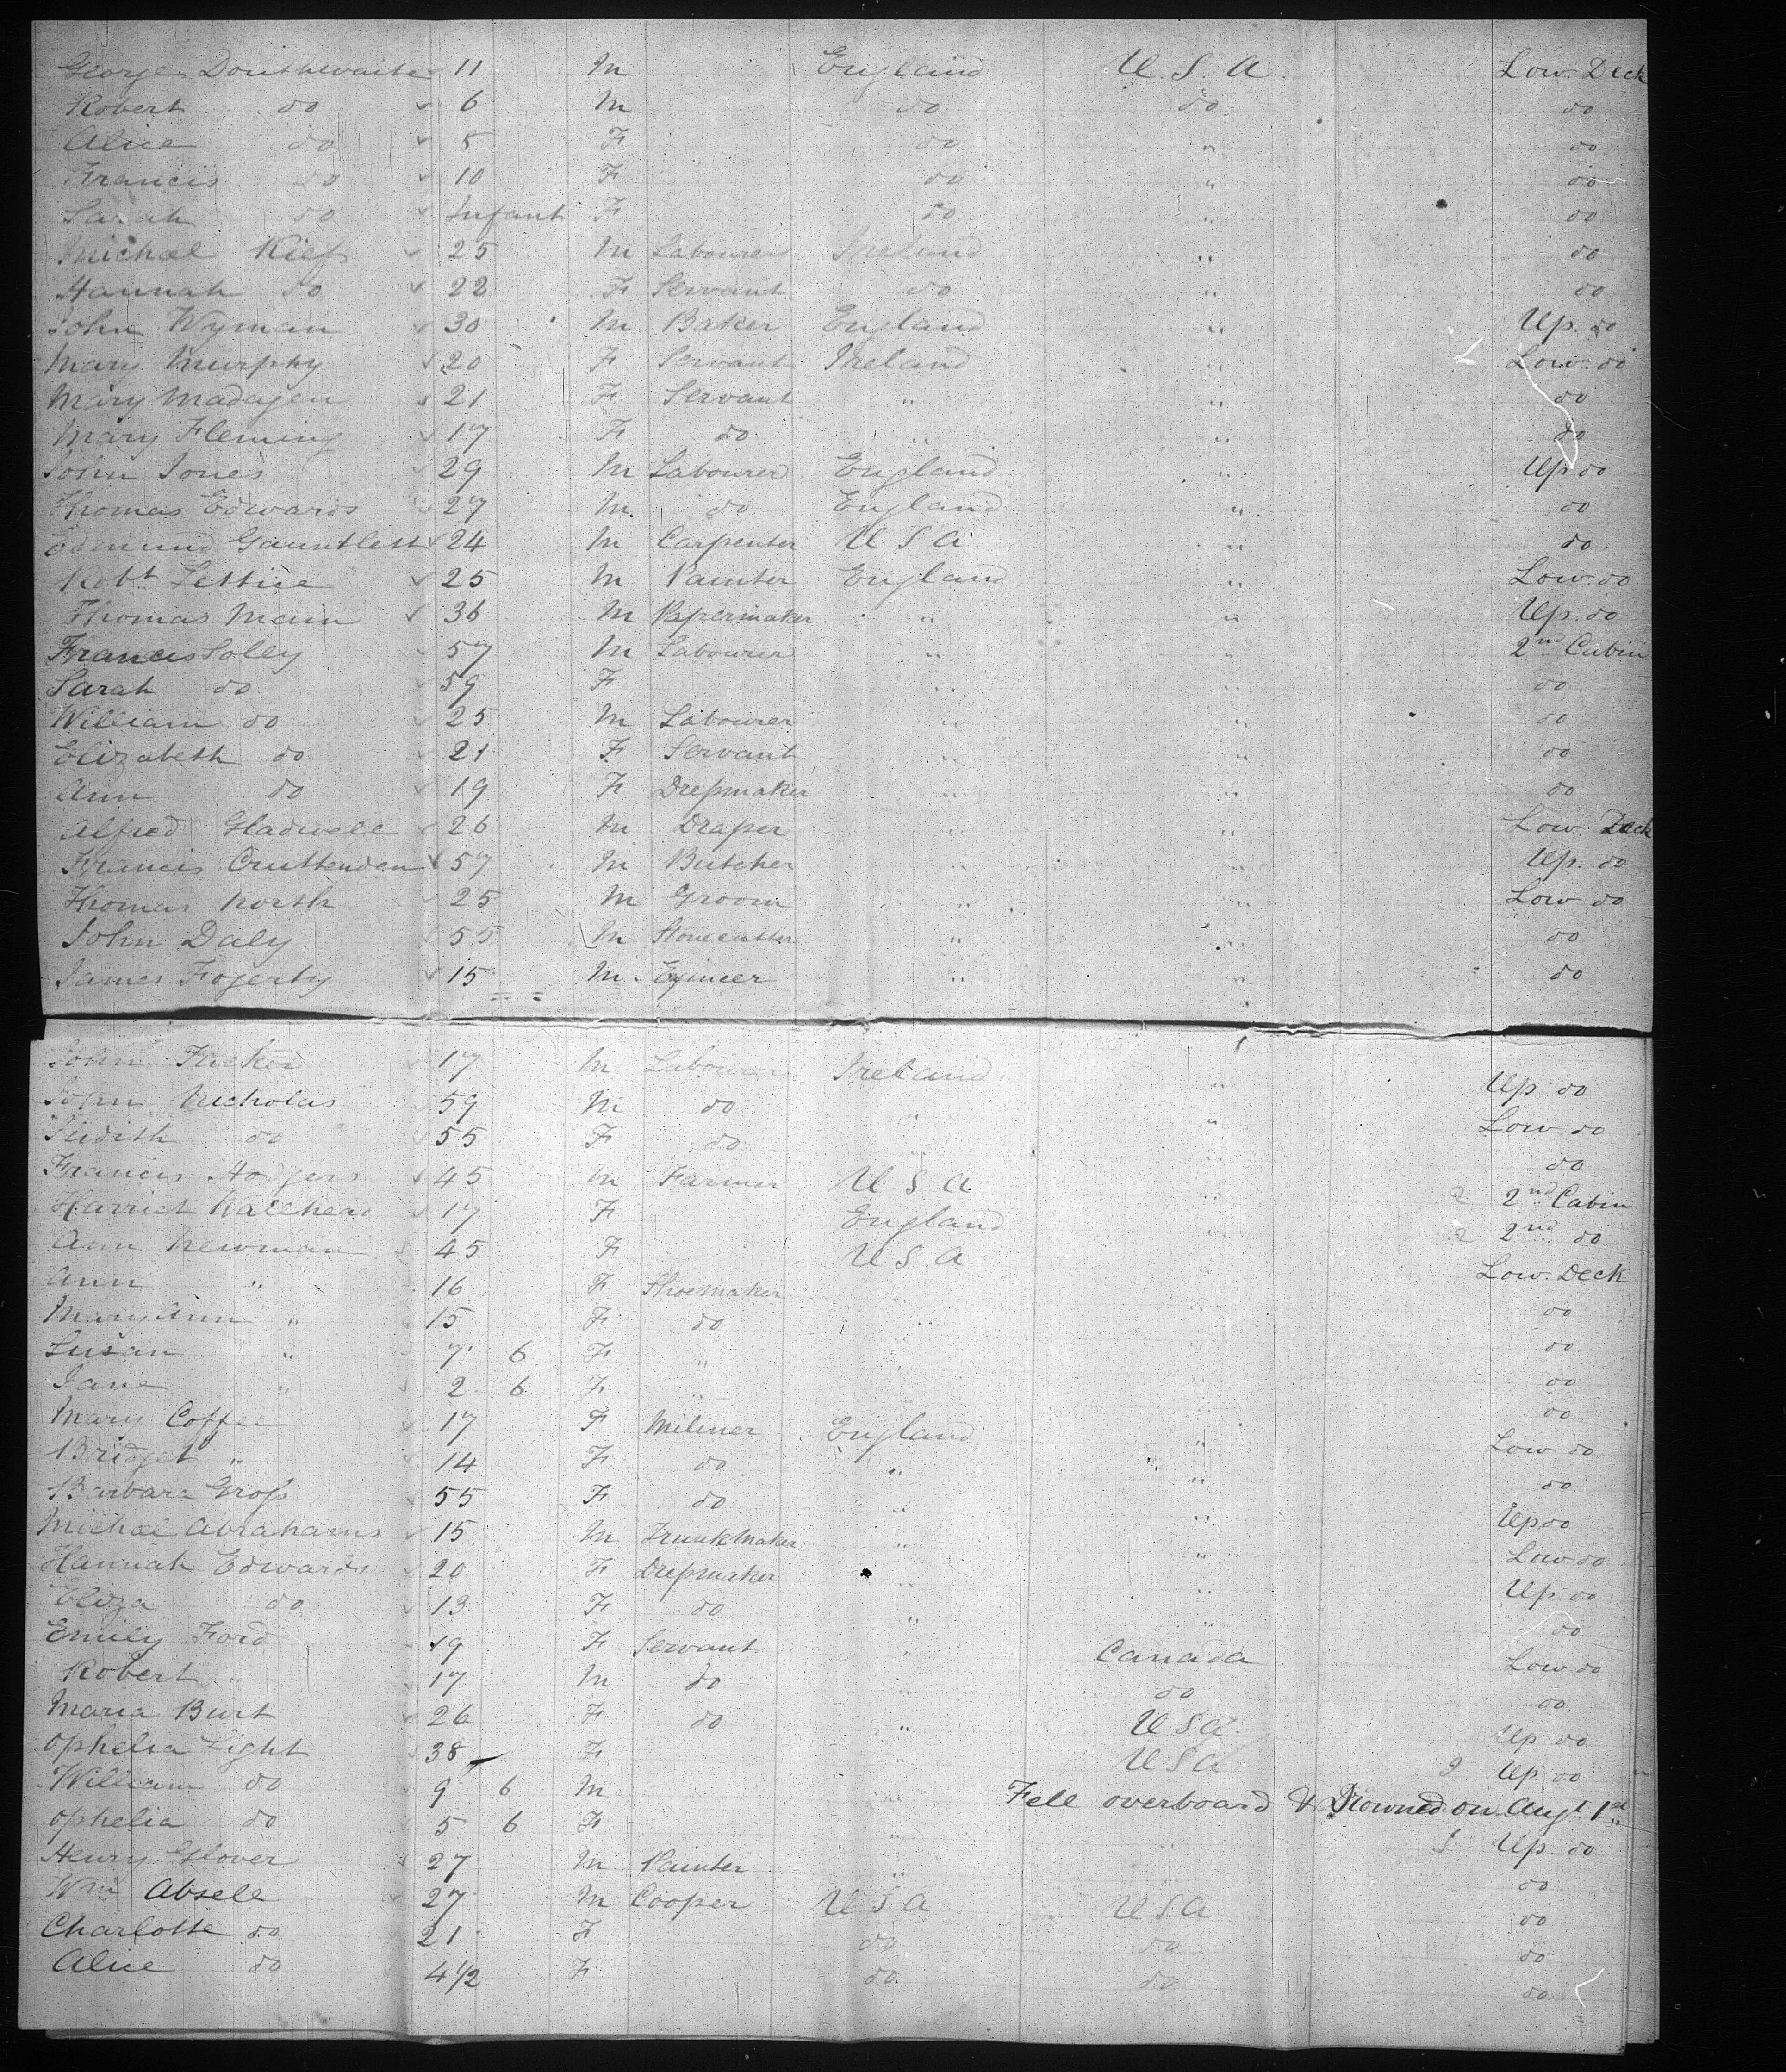 George Douthwaite 11 M England U.S.A. Low. Deck
Robert do 6 M do do do
Alice do 5 F do " do
Francis do 10 F do " do
Sarah do Infant F do " do
Michael Kiefs 25 M Labourer Ireland " do
Hannah do 22 F Servant do " do
John Wyman 30 M Baker England " Up. do
Mary Murphy 20 F Servant Ireland " Low. do
Mary Madagen 21 F Servant " " do
Mary Fleming 17 F do " " do
John Jones 29 M Labourer England " Up do
Thomas Edwards 27 M do England " do
Edmund Gauntlett 24 M Carpenter U S A " do
Robt Lettice 25 M Painter England " Low. do
Thomas Main 36 M Papermaker " " Up. do
Francis Solley 57 M Labourer " " 2nd Cabin
Sarah do 59 F " " do
William do 25 M Labourer " " do
Elizabeth do 21 F Servant " " do
Ann do 19 F Drepmaker " " do
Alfred Gladwell 26 M Draper " " Low. Deck
Francis Cruttenden 57 M Butcher " " Up. do
Thomas North 25 M Groom " " Low do
John Daly 55 M Stonecutter " " do
James Fogerty 15 M Egineer " " do
John Tucker 17 M Labourer Ireland " Up do
John Nicholas 59 M do " " Low do
Judith do 55 F do " " do
Francis Hodgers 45 M Farmer U S A " 2 2nd Cabin
Harriet Railhead 17 F England " 2 2nd do
Ann Newman 45 F U S A " Low. Deck
Ann " 16 F Shoemaker " " do
Mary Ann " 15 F do " " do
Susan " 7 6 F " " " do
Jane " 2 6 F " " " do
Mary Coffee 17 F Miliner England " Low do
Bridget " 14 F do " " do
Barbara Grofs 55 F do " " Up do
Michael Abrahams 15 M Trunkmaker " " Low do
Hannah Edwards 20 F Drepmaker " " Up do
Eliza do 13 F do " " do
Emily Ford 19 F Servant " Canada Low do
Robert " 17 M do " do do
Maria Burt 26 F do " U S A. Up do
Ophelia Light 38 F " U S A Up do
William do 9 6 M " Fell overboard & Drowned on Augt 1st
Ophelia do 5 6 F " " Up. do
Henry Glover 27 M Painter " " do
Wm Absell 27 M Cooper U S A U S A do
Charlotte do 21 F do do do
Alice do 4 1/2 F do do do